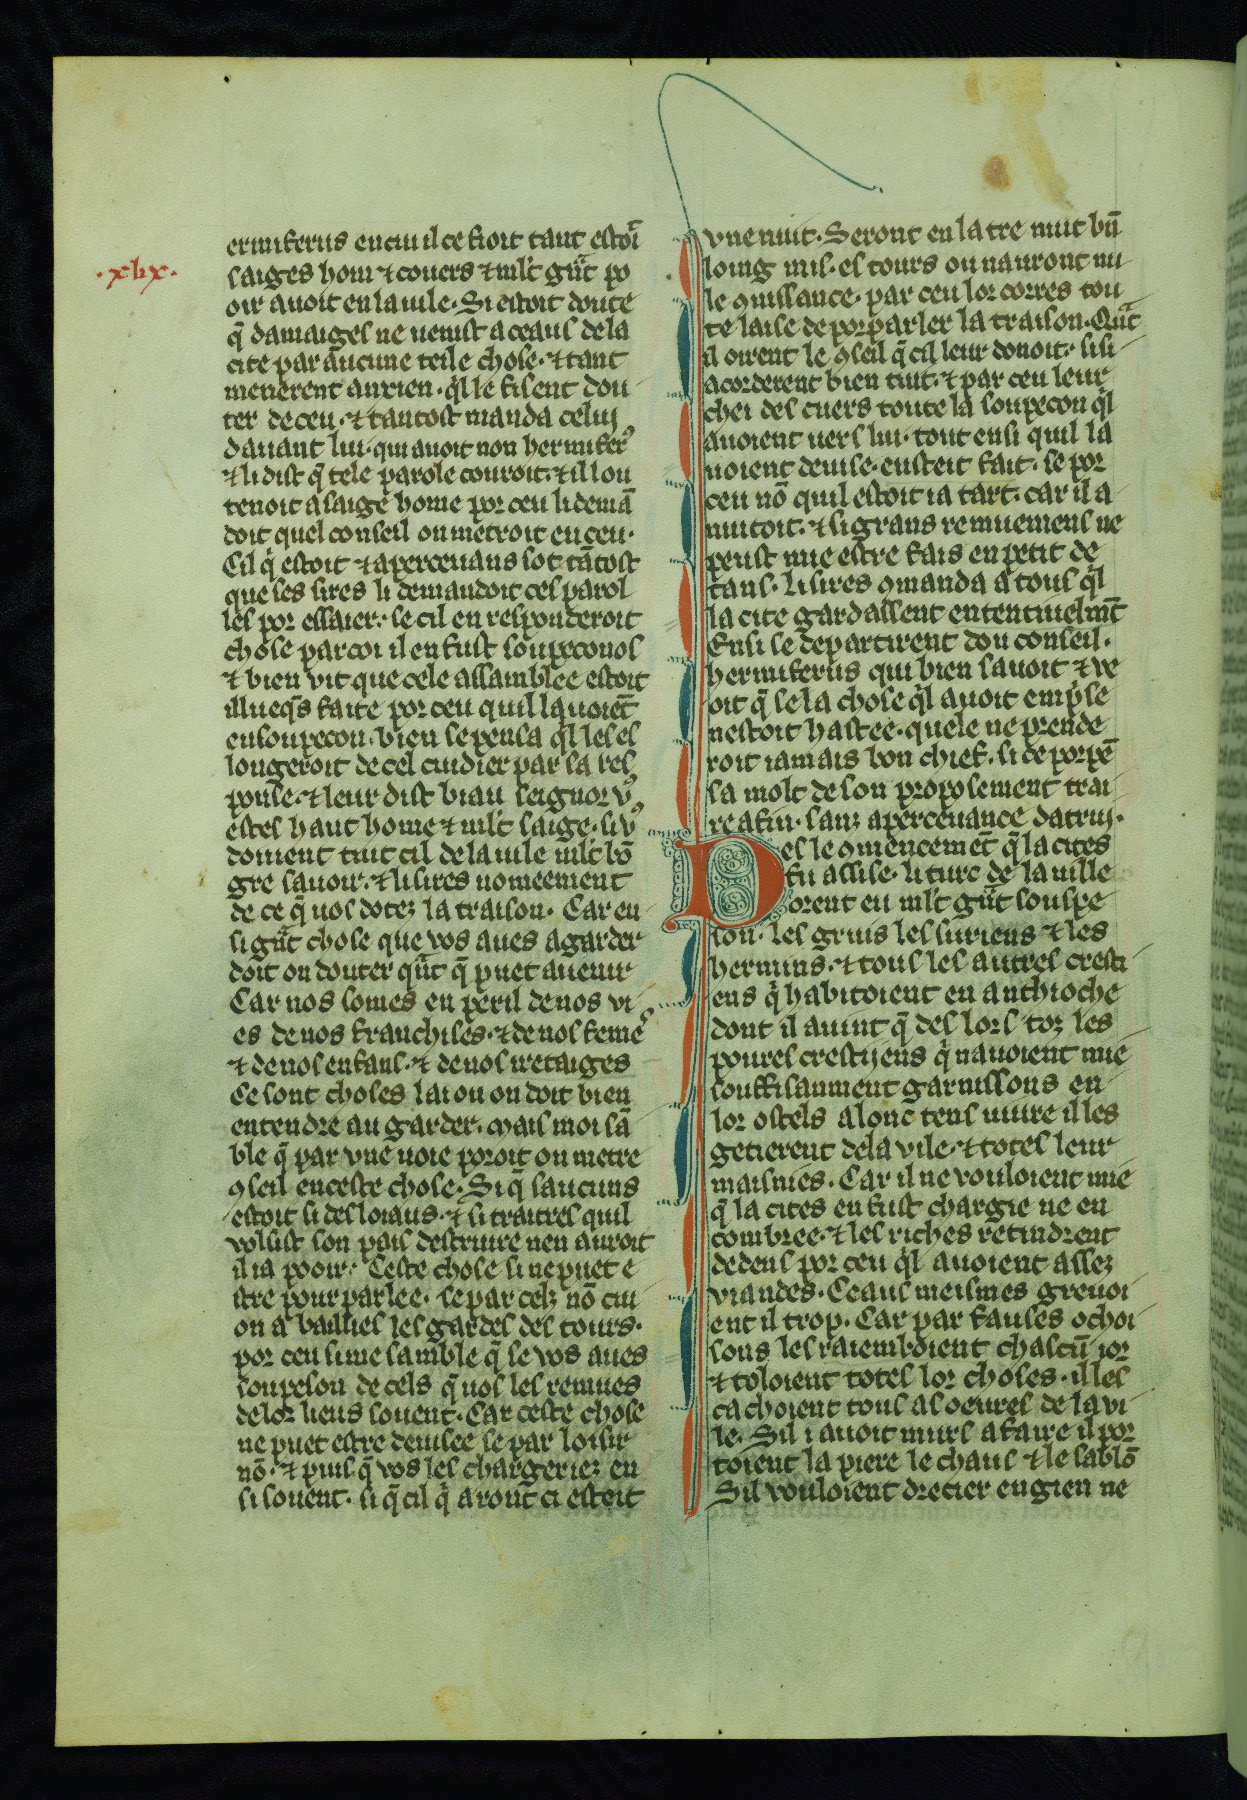 ·xlix·
ermiferus en cui il ce fioit tant estoit
saiges hom ⁊ couers ⁊ mlt̄ gūt po
oir auoit en la uile· Si estoit doute
q̄ damaiges ne uenist a ceaus de la
cite par aucune teile chose· ⁊ tant
menerent aurien· ql le fisent dou
ter de ceu· ⁊ tantost manda celuy
dauant lui· qui auoit non hermifer⁹
⁊ li dist q̄ tele parole couroit· ⁊ il lou
tenoit a saige home por ceu li demā
doit quel conseil on metroit en ceu·
Cil q̇ estoit ⁊ aperceuans sot tātost
que ses sires li demandoit ces parol
les por essaier· se cil en responderoit
chose par coi il en fust soupeconos
⁊ bien vit que cele assamblee estoit
illueq̄s faite por ceu quil lauoiet̄
en soupecon· bien se pensa ql les es
longeroit de cel cuidier par sa res
ponse· ⁊ leur dist biau seignor v⁹
estes haut home ⁊ mlt̄ saige· si v⁹
doiuent tuit cil de la uile mlt̄ bō
gre sauoir· ⁊ li sires nomeement
de ce q̄ uos dotez la traison· Car en
si gūt chose que vos aues a garder
doit on douter qūt q̄ puet auenir
Car nos somes en peril de nos vi
es de nos franchises· ⁊ de nos feme⁹
⁊ de nos enfans· ⁊ de nos iretaiges
Ce sont choses lai ou on doit bien
entendre au garder· mais moi sā
ble q̄ par vne uoie poroit on metre
ꝯseil en ceste chose· Si q̄ saucuns
estoit si desloiaus· ⁊ si traitres quil
volsist son pais destruire nen auroit
il ia pooir· Ceste chose si ne puet e
stre pourparlee· se par celz nō cui
on a bailliés les gardes des tours·
por ceu si me samble q̄ se vos aues
soupeson de cels q̄ uos les remues
de lor lieus souent· Car ceste chose
ne puet estre deuisee se par loisir
nō· ⁊ puis q̄ vos les chargeriez en
si souent· si q̄ cil q̇ aront ci esteit
vne nuit· Seront en latre nuit bn̄
loing mis· es tours ou nauront nu
le ꝯnissance· par ceu lor corres tou
te laise de porparler la traison· Qūt
il oirent le ꝯseil q̄ cil leur donoit· si si
acorderent bien tuit· ⁊ par ceu leur
chei des cuers toute la soupecon ql
auoient uers lui· tout ensi quil la
uoient deuise· eusteit fait· se por
ceu nō quil estoit ia tart· car il a
nuitoit· ⁊ si grans remuemens ne
peust mie estre fais en petit de
tans· li sires ꝯmanda a tous ql
la cite gardassent ententiuelmēt
Ensi se departirent dou conseil·
hermiferus qui bien sauoit ⁊ ve
oit q̄ se la chose ql auoit emp̄se
nestoit hastee· quele ne prende
roit iamais bon chief· si ce porpē
sa molt de son proposement trai
re a fin· sanz aperceuance datruy·
Des le ꝯmencemēt q̄ la cites
fu assise· li turc de la uille
orent en mlt̄ gūt souspe
son· les griuis les suriens ⁊ les
hermins· ⁊ tous les autres cresti
ens q̇ habitoient en anthioche
dont il auint q̄ des lors toz les
poures crestyens q̇ nauoient mie
souffisanment garnissons en
lor ostels a lonc tens uiure il les
getierent de la vile· ⁊ totes leur
maisnies· Car il ne vouloient mie
q̄ la cites en fust chargie ne en
combree· ⁊ les riches retindrent
dedens por ceu ql auoient assez
viandes· Ceaus meismes greuoi
ent il trop· Car par fauses ochoi
sons les raiemboient chascū ior
⁊ toloient totes lor choses· il les
cachoient tous as oeures de la vi
le· Sil i auoit murs a faire il por
toient la piere le chaus ⁊ le sablō
Sil vouloient drecier engien ne